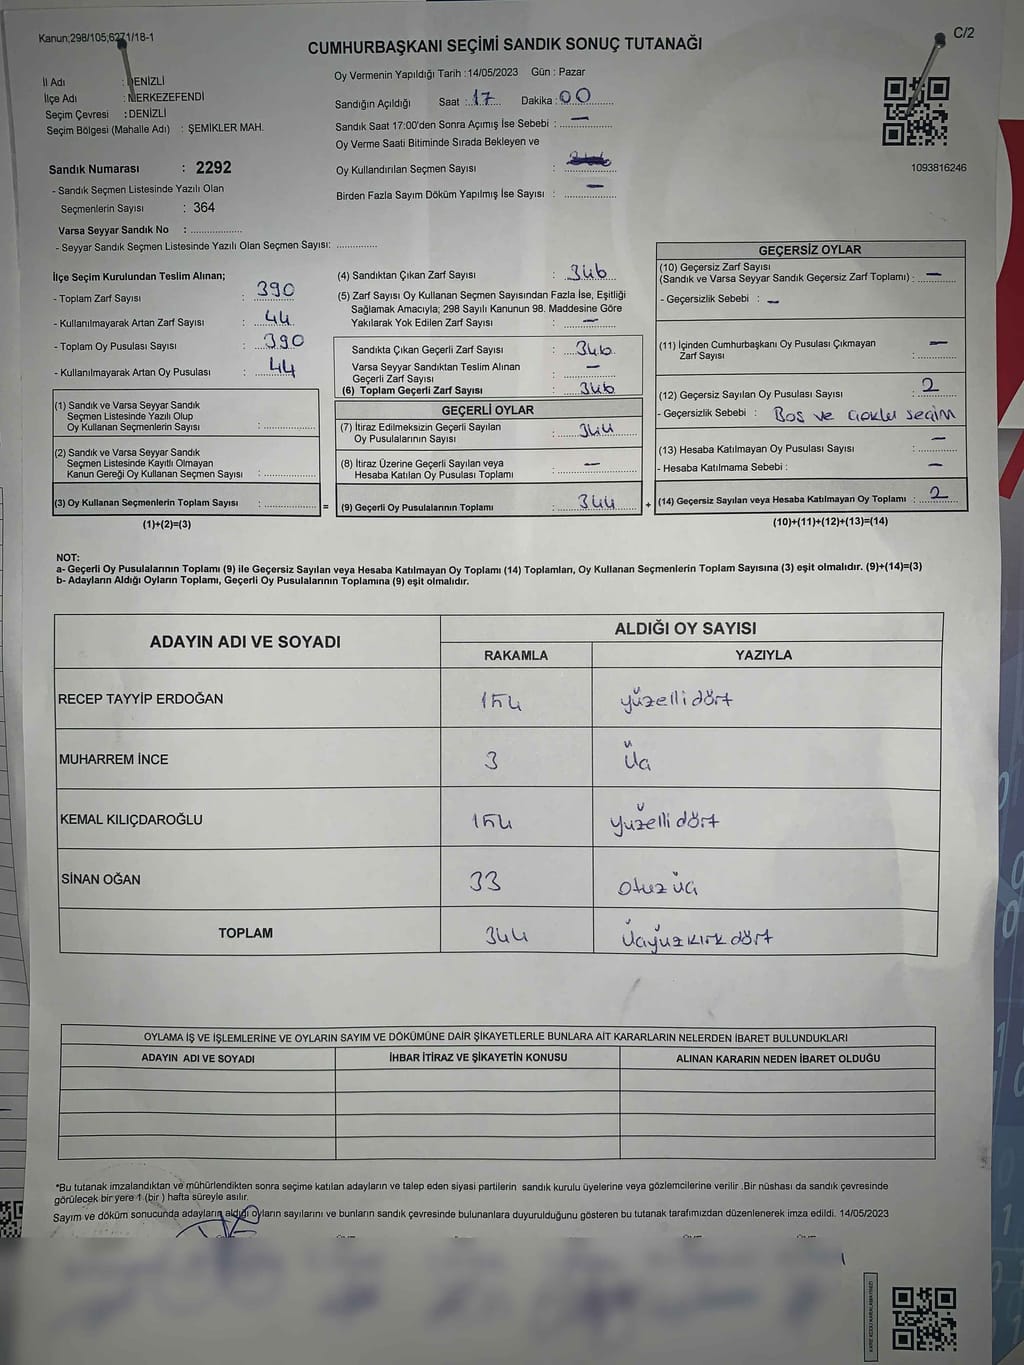 Kanun;298/105;6271/18-1
C/2
CUMHURBAŞKANI SEÇİMİ SANDIK SONUÇ TUTANAĞI
İl Adı : DENİZLİ
İlçe Adı : MERKEZEFENDİ
Seçim Çevresi : DENİZLİ
Seçim Bölgesi (Mahalle Adı) : ŞEMİKLER MAH.
Sandık Numarası : 2292
- Sandık Seçmen Listesinde Yazılı Olan
Seçmenlerin Sayısı : 364
Varsa Seyyar Sandık No : ...................
- Seyyar Sandık Seçmen Listesinde Yazılı Olan Seçmen Sayısı: ...............
Oy Vermenin Yapıldığı Tarih : 14/05/2023 Gün : Pazar
Sandığın Açıldığı Saat : 17 Dakika : 00
Sandık Saat 17:00'den Sonra Açımış İse Sebebi : —
Oy Verme Saati Bitiminde Sırada Bekleyen ve
Oy Kullandırılan Seçmen Sayısı :
Birden Fazla Sayım Döküm Yapılmış İse Sayısı : —
1093816246
İlçe Seçim Kurulundan Teslim Alınan;
- Toplam Zarf Sayısı : 390
- Kullanılmayarak Artan Zarf Sayısı : 44
- Toplam Oy Pusulası Sayısı : 390
- Kullanılmayarak Artan Oy Pusulası : 44
(1) Sandık ve Varsa Seyyar Sandık
Seçmen Listesinde Yazılı Olup
Oy Kullanan Seçmenlerin Sayısı : ...............
(2) Sandık ve Varsa Seyyar Sandık
Seçmen Listesinde Kayıtlı Olmayan
Kanun Gereği Oy Kullanan Seçmen Sayısı : ...............
(3) Oy Kullanan Seçmenlerin Toplam Sayısı : ...............
(1)+(2)=(3)
=
(4) Sandıktan Çıkan Zarf Sayısı : 346
(5) Zarf Sayısı Oy Kullanan Seçmen Sayısından Fazla İse, Eşitliği
Sağlamak Amacıyla; 298 Sayılı Kanunun 98. Maddesine Göre
Yakılarak Yok Edilen Zarf Sayısı : —
Sandıkta Çıkan Geçerli Zarf Sayısı : 346
Varsa Seyyar Sandıktan Teslim Alınan
Geçerli Zarf Sayısı : —
(6) Toplam Geçerli Zarf Sayısı : 346
GEÇERLİ OYLAR
(7) İtiraz Edilmeksizin Geçerli Sayılan
Oy Pusulalarının Sayısı : 344
(8) İtiraz Üzerine Geçerli Sayılan veya
Hesaba Katılan Oy Pusulası Toplamı : —
(9) Geçerli Oy Pusulalarının Toplamı : 344
+
GEÇERSİZ OYLAR
(10) Geçersiz Zarf Sayısı
(Sandık ve Varsa Seyyar Sandık Geçersiz Zarf Toplamı) : —
- Geçersizlik Sebebi : —
(11) İçinden Cumhurbaşkanı Oy Pusulası Çıkmayan
Zarf Sayısı : —
(12) Geçersiz Sayılan Oy Pusulası Sayısı : 2
- Geçersizlik Sebebi : Boş ve çoklu seçim
(13) Hesaba Katılmayan Oy Pusulası Sayısı : —
- Hesaba Katılmama Sebebi : —
(14) Geçersiz Sayılan veya Hesaba Katılmayan Oy Toplamı : 2
(10)+(11)+(12)+(13)=(14)
NOT:
a- Geçerli Oy Pusulalarının Toplamı (9) ile Geçersiz Sayılan veya Hesaba Katılmayan Oy Toplamı (14) Toplamları, Oy Kullanan Seçmenlerin Toplam Sayısına (3) eşit olmalıdır. (9)+(14)=(3)
b- Adayların Aldığı Oyların Toplamı, Geçerli Oy Pusulalarının Toplamına (9) eşit olmalıdır.
ADAYIN ADI VE SOYADI
ALDIĞI OY SAYISI
RAKAMLA YAZIYLA
RECEP TAYYİP ERDOĞAN 154 yüzelli dört
MUHARREM İNCE 3 Üç
KEMAL KILIÇDAROĞLU 154 yüzelli dört
SİNAN OĞAN 33 otuz üç
TOPLAM 344 Üçyüz kırk dört
OYLAMA İŞ VE İŞLEMLERİNE VE OYLARIN SAYIM VE DÖKÜMÜNE DAİR ŞİKAYETLERLE BUNLARA AİT KARARLARIN NELERDEN İBARET BULUNDUKLARI
ADAYIN ADI VE SOYADI İHBAR İTİRAZ VE ŞİKAYETİN KONUSU ALINAN KARARIN NEDEN İBARET OLDUĞU
*Bu tutanak imzalandıktan ve mühürlendikten sonra seçime katılan adayların ve talep eden siyasi partilerin sandık kurulu üyelerine veya gözlemcilerine verilir .Bir nüshası da sandık çevresinde
görülecek bir yere 1 (bir ) hafta süreyle asılır.
Sayım ve döküm sonucunda adayların aldığı oyların sayılarını ve bunların sandık çevresinde bulunanlara duyurulduğunu gösteren bu tutanak tarafımızdan düzenlenerek imza edildi. 14/05/2023